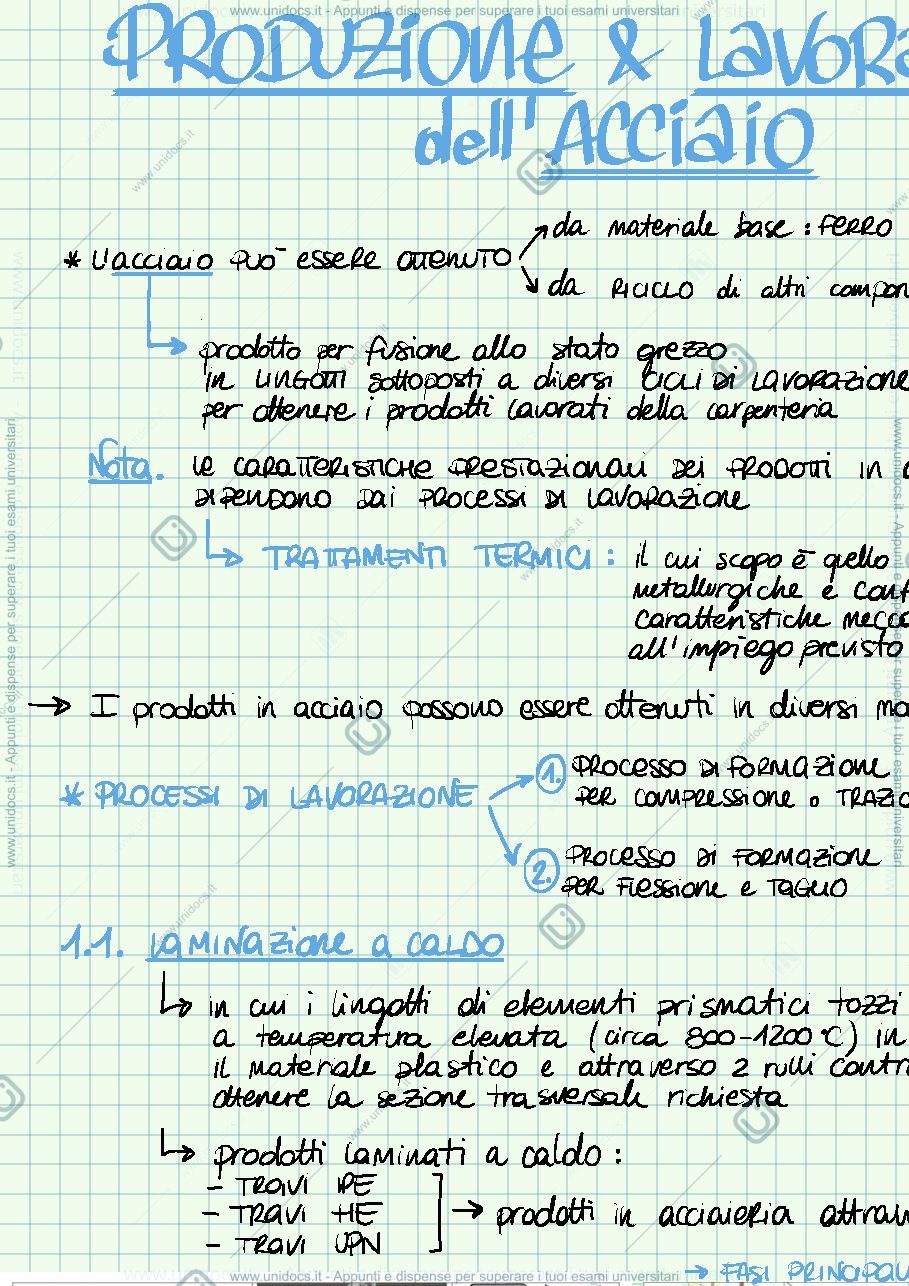 www.unidocs.it - Appunti e dispense per superare i tuoi esami universitari
PRODUZIONE & LAVORA
dell'ACCIAIO
* L'acciaio PUÒ ESSERE OTTENUTO
da materiale base : FERRO
da RICICLO di altri compon
prodotto per fusione allo stato grezzo
IN LINGOTTI sottoposti a diversi CICLI DI LAVORAZIONE
per ottenere i prodotti lavorati della carpenteria
Nota. LE CARATTERISTICHE PRESTAZIONALI DEI PRODOTTI IN
DIPENDONO DAI PROCESSI DI LAVORAZIONE
TRATTAMENTI TERMICI : il cui scopo è quello
metallurgiche e conf
caratteristiche mecca
all'impiego previsto
→ I prodotti in acciaio possono essere ottenuti in diversi mo
* PROCESSI DI LAVORAZIONE
1. PROCESSO DI FORMAZIONE
PER COMPRESSIONE o TRAZIO
2. PROCESSO DI FORMAZIONE
PER FLESSIONE E TAGLIO
1.1. LAMINAZIONE a CALDO
in cui i lingotti di elementi prismatici tozzi
a temperatura elevata (circa 800-1200°C) in
il materiale plastico e attraverso 2 rulli contr
ottenere la sezione trasversale richiesta
prodotti laminati a caldo :
- TRAVI IPE
- TRAVI HE → prodotti in acciaieria attrav
- TRAVI UPN
→ FASI PRINCIPALI
www.unidocs.it - Appunti e dispense per superare i tuoi esami universitari